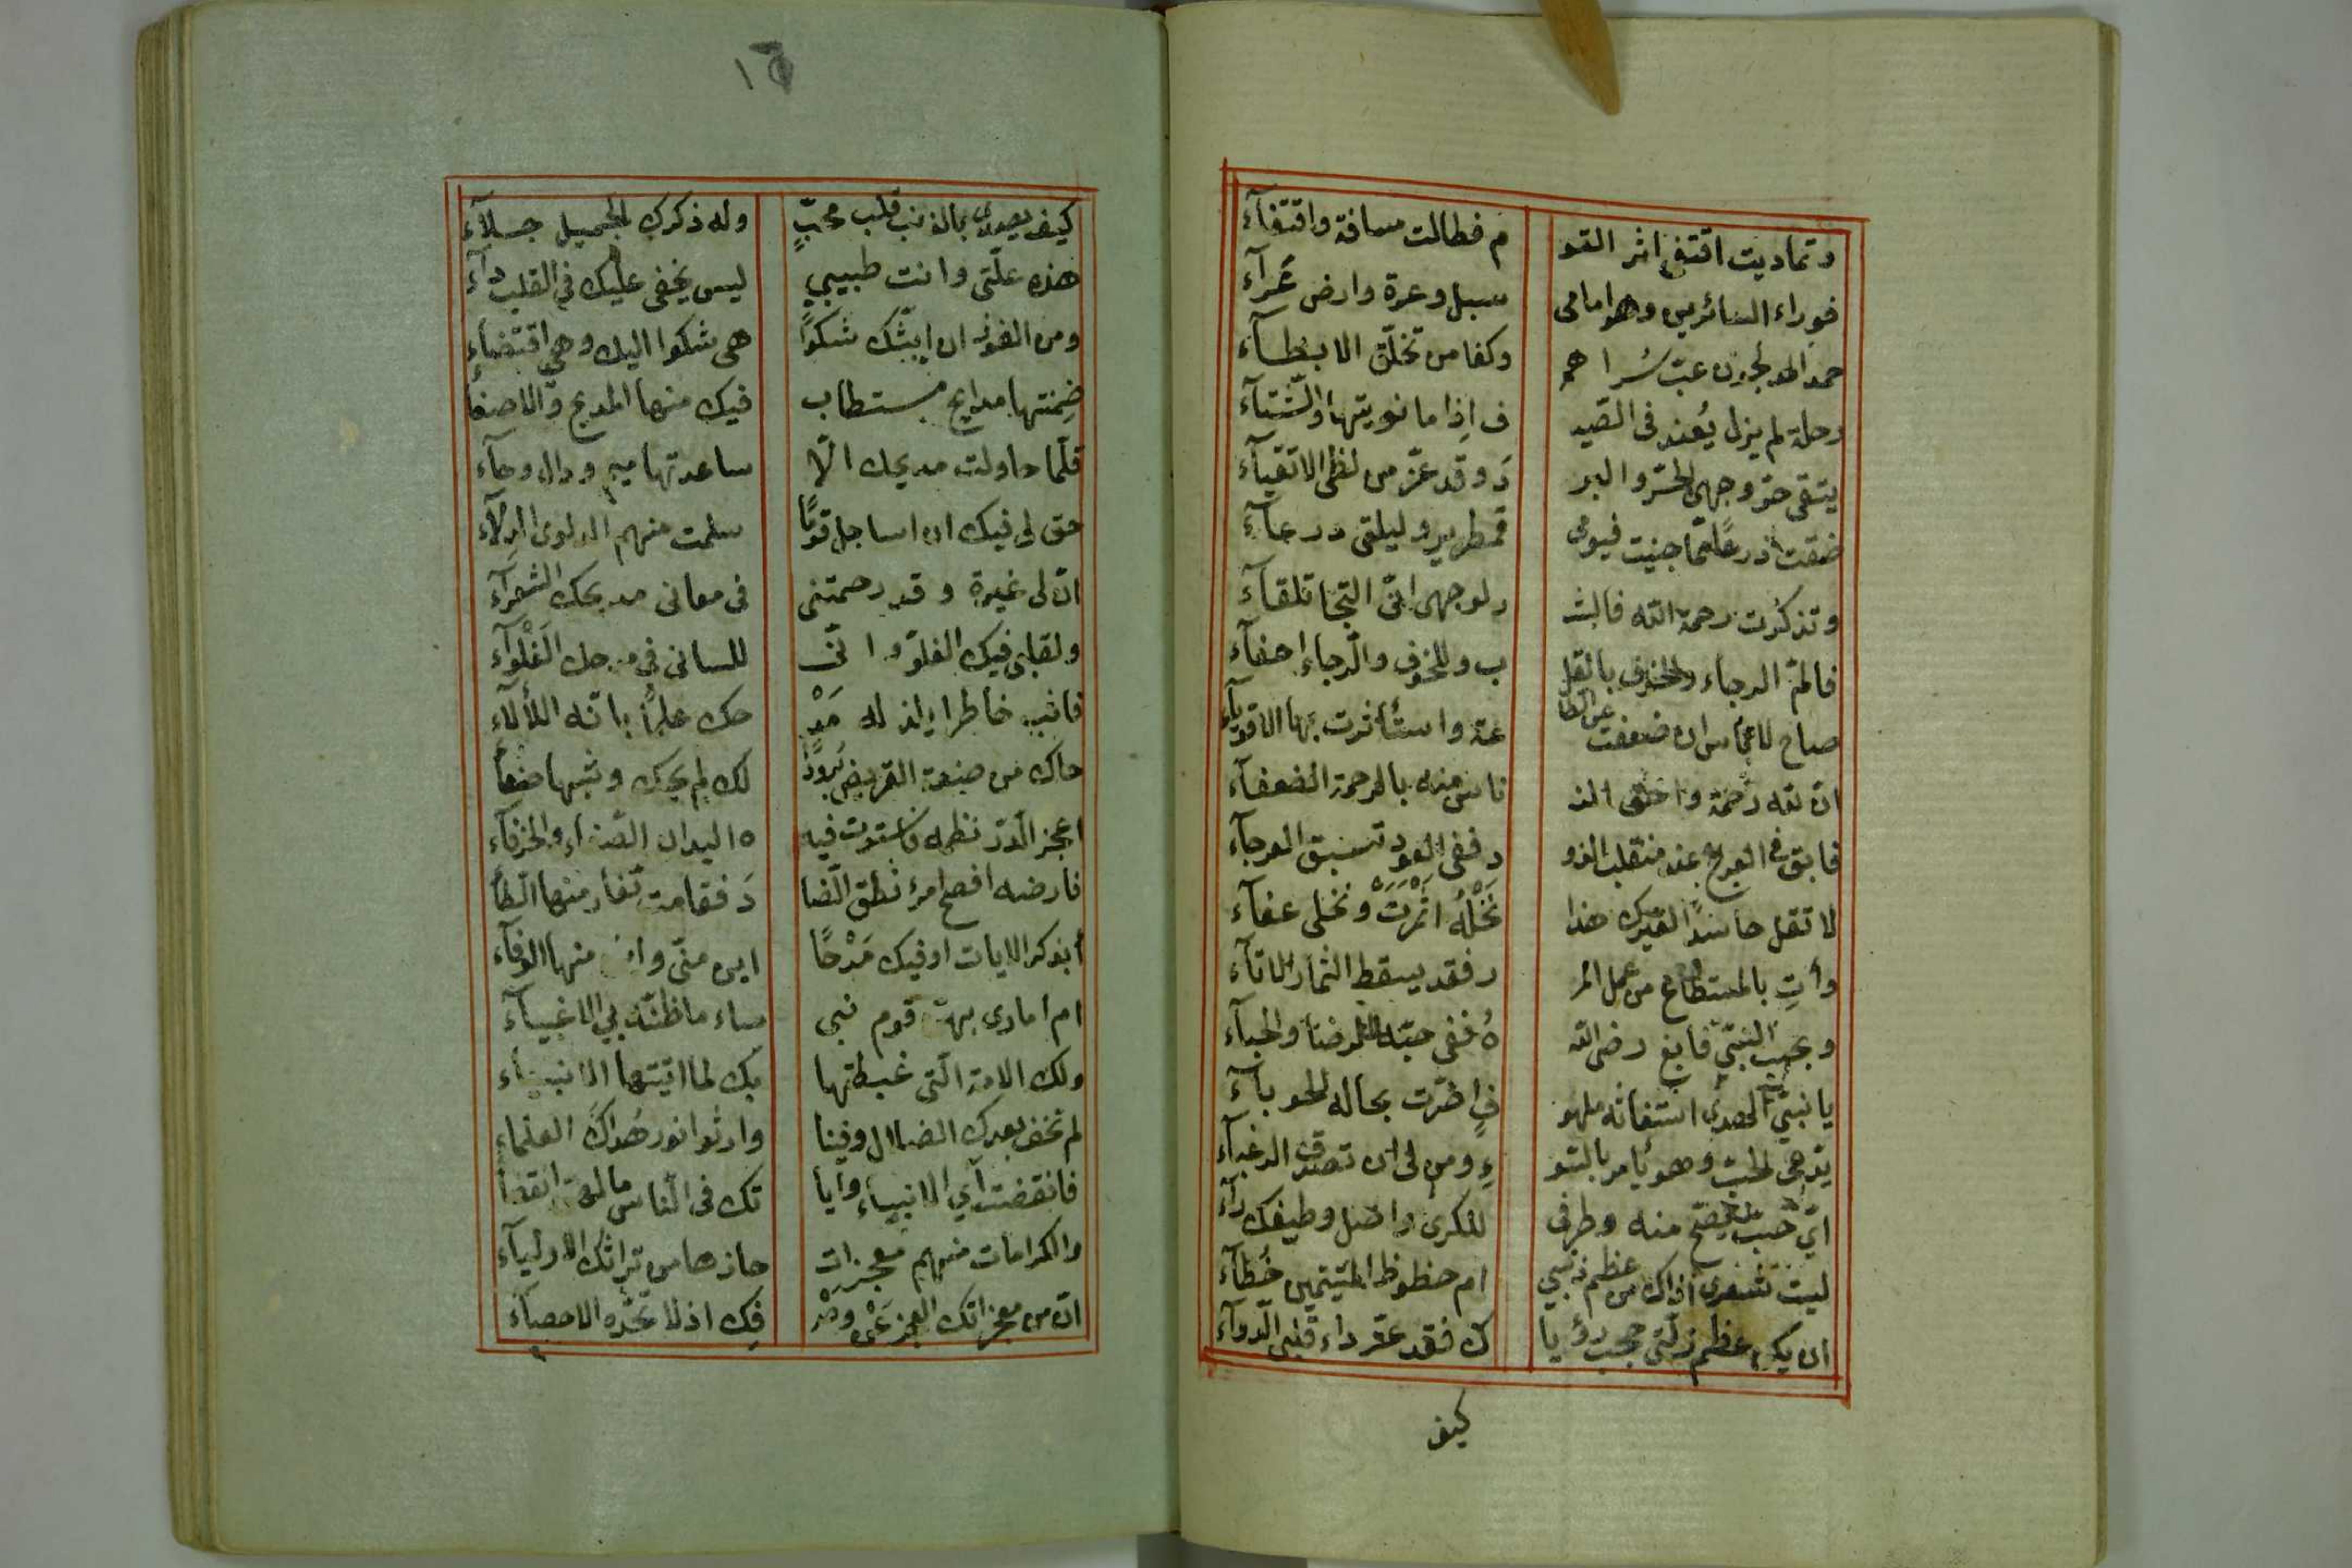 وتماديت اقتفى اثر القو م فطالت مسافة واقتفآء
فوراء السائرين وهو امامى سبل وعرة وارض عَرآء
حمد المدلجون غبّ سُراهم وكفا من تخلّق الابطآء
رحلة لم يزل يُفند فى الصّيـ ـف اذا ما نويتها والشّتآء
يتقى حرّ وجهى الحرّ والبر دَ وقد عزّ من لظى الاتقيآء
ضقت ذرعًا مما جنيت فيومى قمطرير وليلتى درعآء
وتذكرت رحمة الله فالبشـ ـر لوجهى انّى التجا تلقآء
فالمّ الرجاء والخوف بالقلـ ـب وللخوف والرجاء احفآء
صاح لا تأس ان ضعفت عن الطا عة واستأثرت بها الاقويآء
ان لله رحمة واحق النـ ـناس منه بالرحمة الضعفآء
فابق فى العرج عند منقلب الذو د ففى العود تسبق العرجآء
لا تقل حاسدًا لغيرك هذا اثمرت نَخْلُهُ ونخلى عفآء
وأتِ بالمستطاع من عمل البر ر فقد يسقط الثمار الاتآء
وبحب النبىّ فابغ رضى اللـ ـهُ ففى حبّه الرضا والحبآء
يا نبىّ الهدى استغاثة ملهو فٍ اضرّت بحاله الحوبآء
يدّعى الحبّ وهو يأمر بالسّو ءِ ومن لى ان تصدق الرغبآء
اىّ حبّ يصحّ منه وطرفى للكرى واصل وطيفك رآء
ليت شعرى اذاك من عظم ذنبى ام حظوظ المتيّمين حُظآء
ان يكن عظم زلّتى حجب رؤيا ك فقد عزّ داء قلبى الدوآء
كيف
١٦
كيف يصدى بالذنب قلب محبٍّ وله ذكرك الجميل جلآء
هذه علّتى وانت طبيبى ليس يخفى عليك فى القلب دآء
ومن الفوز ان ابثّك شكوًا هى شكوا اليك وهى اقتضآء
ضمنتها مدايح مستطاب فيك منها المديح والاصغآ
قلّما حاولت مديحك الّا ساعدتها ميم ودال وحآء
حق لى فيك ان اساجل قومًا سلمت منهم لدلوى الدلآء
انّ لى غيرة وقد زحمتنى فى معانى مديحك الشعرآء
ولقلبى فيك الغلوّ وانّى للسانى فى مدحك الغَلْوآء
فاثب خاطرا يلذ له مَدْ حك علمًا بانّه اللألآء
حاك من صنعة القريض بُرودًا لك لم يحك وشيها صنعآ
اعجز الدرّ نظمه فاستوت فيـ ـه اليدان الصّناع والخرقآء
فارضه افصح امرئ نطق الضا دَ فقامت تغار منها الظآ
أبذكر الايات اوفيك مَدْحًا اين منّى واين منها الوفآء
ام امارى بهنّ قوم نبى ساء ما ظنّه بى الاغبيآء
ولك الامة التى غبطتها بك لما اتيتها الانبيآء
لم نخف بعدك الضلال وفينا وارثوا نور هُداك العلمآء
فانقضت آى الانبياء وآيا تك فى الناس ما لهن انقضآ
والكرامات منهم معجزات حازها من تراثك الاوليآء
انّ من معجزاتك العجز عَنْ وصْـ ـفِك اذ لا يحّده الاحصآء